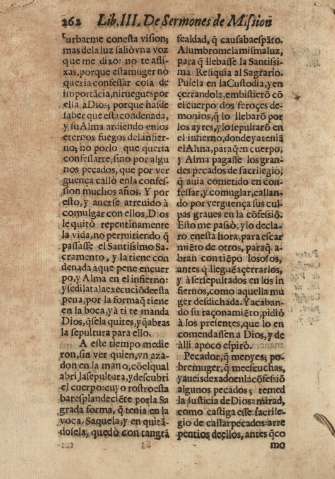 262 Lib. III. De Sermones de Mission
turbarme con esta vision;
mas de la luz salió vna voz
que me dixo: no te aflixas,
porque esta muger no
queria confessar cosa de
importácia, ni ruegues por
ella a Dios; porque has de
saber que està condenada,
y su Alma ardiendo en los
eternos fuegos del infierno;
no porlo que queria
confessarte, sino por algunos
pecados, que por verguença
callò en la confession
muchos años. Y por
esto, y averse atrevido à
comulgar con ellos, Dios
le quitò repentinamente
la vida, no permitiendo q̃
passasse el Santissimo Sacramento,
y la tiene condenada
a que pene en cuerpo,
y Alma en el infierno:
y se dilata la execució de esta
pena, por la forma q̃ tiene
en la boca, y à ti te manda
Dios, q̃ se la quites, y q̃ abras
la sepultura para ello.
A este tiempo medieron,
sin ver quien, vn azadon
en la mano, có el qual
abri la sepultura, y descubri
el cuerpo en cuyo rostro estaba
resplandeciéte por la Sagrada
forma, q̃ tenia en la
voca. Saquela, y en quitádosela,
quedò con tan grã
fealdad, q̃ causaba espáto.
Alumbrome la misma luz,
para q̃ llebasse la Santissima
Reliquia al Sagrario.
Pusela en la Custodia, y en
cerrandola, embistieró có
el cuerpo dos feroçes demonios,
q̃ lo llebaró por
los ayres, y lo sepultaró en
el infierno, donde ya tenia
el Alma, para q̃ en cuerpo,
y Alma pagasse los grandes
pecados de sacrilegio,
q̃ avia comerido en confessar,
y comulgar, callando
por verguença sus culpas
graues en la cófesió.
Esto me pasò; y lo declaro
en esta hora, para escarmiéto
de otros, para q̃ abran
con tiépo los ojos,
antes q̃ llegué à cerrarlos,
y à ser sepultados en los infiernos,
como aquella muger
desdichada. Y acabando
su raçonamiéto, pidió
à los presientes, que lo encomendassen
a Dios, y de
alli à poco espirò.
Pecador, q̃ me oyes; pobre
muger, q̃ me escuchas,
y aueis dexado en la cófesió
algunos pecados; temed
la justicia de Dios: mirad,
como castiga esse sacrilegio
de callar pecados: arrepentios
de ellos, antes q̃ co
mo